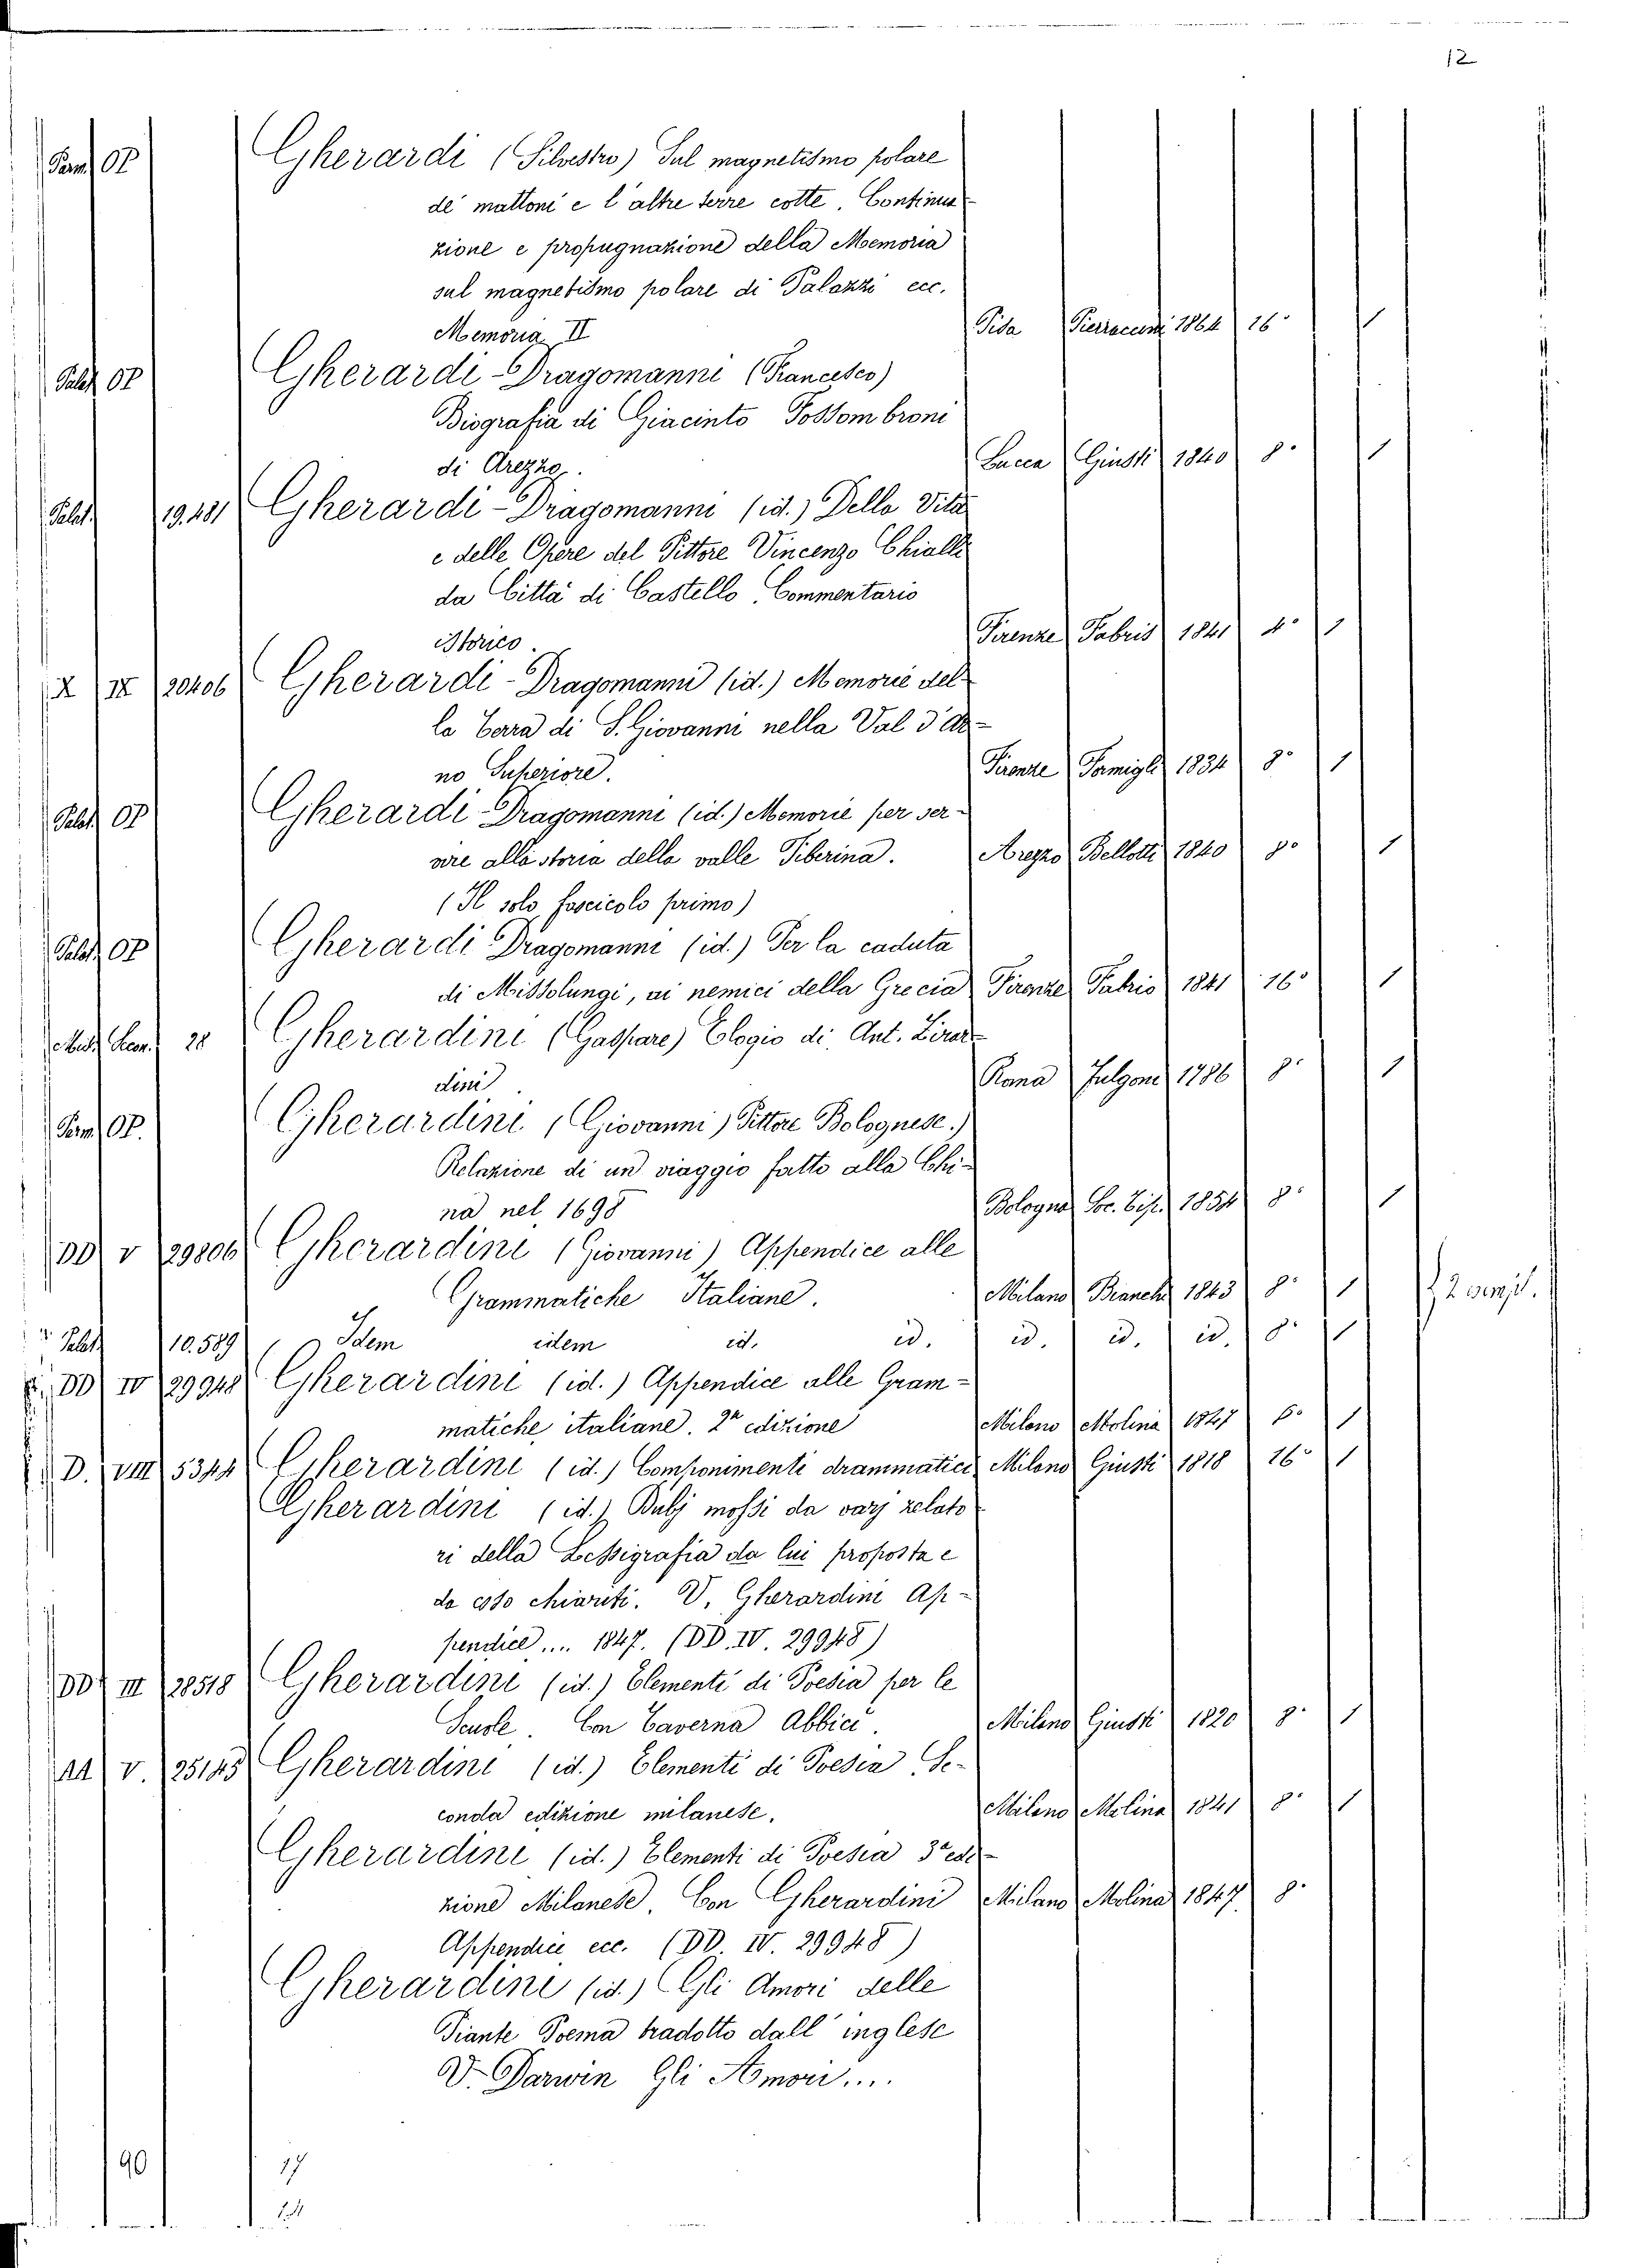 12
Pam. OP Gherardi (Silvestro) Sul magnetismo polare
de' mattoni e l'altre terre cotte. Continua-
zione e propugnazione della Memoria
sul magnetismo polare di Palazzi ecc.
Memoria II Pisa Pieraccini 1864 16° 1
Palat. OP Gherardi-Dragomanni (Francesco)
Biografia di Giacinto Fossombroni
di Arezzo. Lucca Giusti 1840 8° 1
Palat. 19.481 Gherardi-Dragomanni (id.) Della Vita
e delle Opere del Pittore Vincenzo Chialli
da Città di Castello. Commentario
Storico. Firenze Fabris 1841 4° 1
X IX 20406 Gherardi-Dragomanni (id.) Memorie del-
la Terra di S. Giovanni nella Val d'Ar-
no Superiore. Firenze Famigli 1834 8° 1
Palat. OP Gherardi-Dragomanni (id.) Memorie per ser-
vire alla storia della valle Tiberina. Arezzo Bellotti 1840 8° 1
(Il solo fascicolo primo)
Palat. OP Gherardi Dragomanni (id.) Per la caduta
di Missolungi, ai nemici della Grecia Firenze Fabris 1841 16° 1
28 Gherardini (Gaspare) Elogio di Ant. Lirar-
dini Roma Fulgoni 1786 8° 1
Pam. OP. Gherardini (Giovanni) Pittore Bolognese.)
Relazione di un viaggio fatto alla Chi-
na nel 1698 Bologna Soc. Tip. 1854 8° 1
DD V 29806 Gherardini (Giovanni) Appendice alle
Grammatiche Italiane. Milano Bianchi 1843 8° 1 2 esempl.
Palat. 10.589 Idem idem id. id. id. id. id. 8° 1
DD IV 29948 Gherardini (id.) Appendice alle Gram-
matiche italiane. 2ª edizione Milano Molina 1847 8° 1
D. VIII 5344 Gherardini (id.) Componimenti drammatici Milano Giusti 1818 16° 1
Gherardini (id.) Dubj mossi da varj zelato-
ri della Lessigrafia da lui proposta e
da esso chiariti. V. Gherardini Ap-
pendice.... 1847. (DD. IV. 29948)
DD III 28518 Gherardini (id.) Elementi di Poesia per le
Scuole. Con Caverna Abbici. Milano Giusti 1820 8° 1
AA V. 25145 Gherardini (id.) Elementi di Poesia. Se-
conda edizione milanese. Milano Molina 1841 8° 1
Gherardini (id.) Elementi di Poesia 3ª edi-
zione Milanese. Con Gherardini Milano Molina 1847 8°
Appendice ecc. (DD. IV. 29948)
Gherardini (id.) Gli Amori delle
Piante Poema tradotto dall' inglese
V. Darwin Gli Amori....
90 17